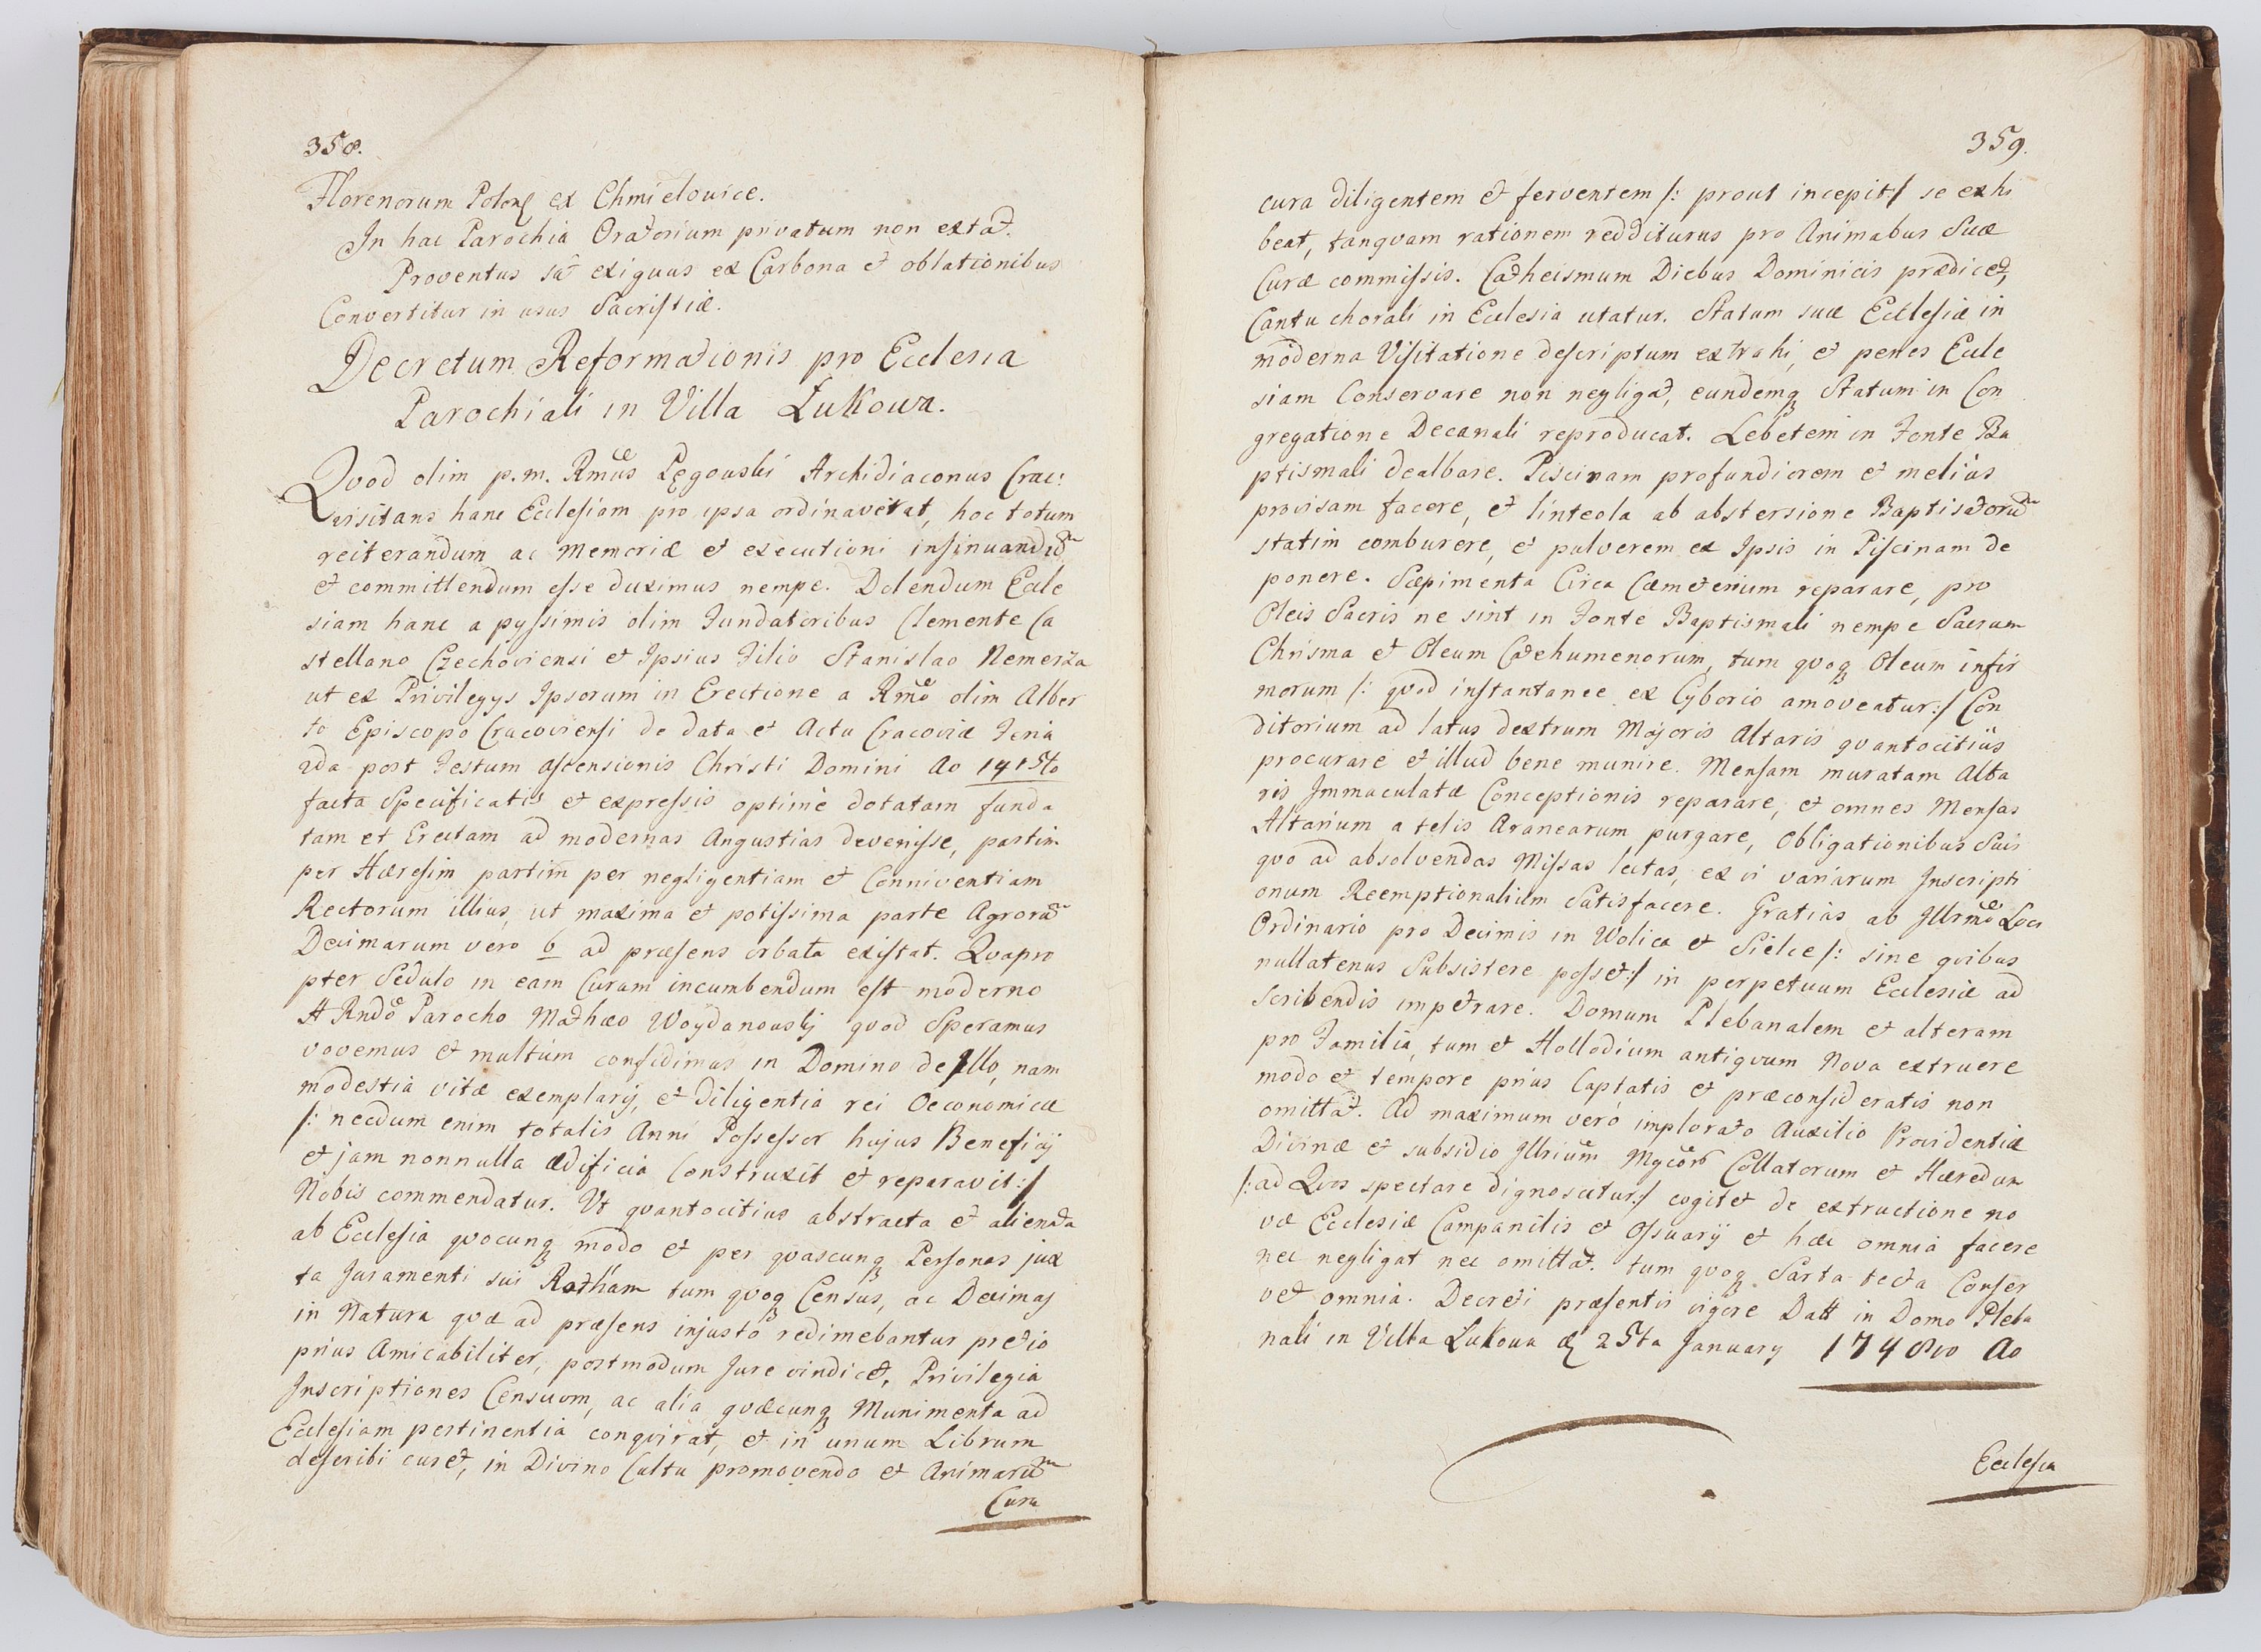 358.
Florenorum Polonq ex Chmielovice.
In hac Parochia Oratorium privatum non extat.
Proventus sat exiguus ex Carbona et oblationibus
Convertitur in usus Sacristiæ.
Decretum Reformationis pro Ecclesia
Parochiali in Villa Łukowa.
Quod olim p.m. Rmus Pęgowski Archidiaconus Crac:
visitans hanc Ecclesiam pro ipsa ordinaverat, hoc totum
reiterandum ac memoriæ et executioni insinuandum
et committendum esse duximus nempe. Dolendum Eccle
siam hanc a pyssimis olim Fundatoribus Clemente Ca
stellano Czechoviensi et Ipsius Filio Stanislao Nemerza
ut ex Privilegys Ipsorum in Erectione a Rmo olim Alber
to Episcopo Cracoviensi de data et Actu Cracoviæ Feria
2da post Festum Ascensionis Christi Domini Ao 1415to
facta Specificatis et expressis optimè dotatam funda
tam et Erectam ad modernas Angustias devenisse, partim
per Hæresim partim per negligentiam et Conniventiam
Rectorum illius, ut maxima et potissima parte Agrorum
Decimarum vero 6 ad præsens orbata existat. Qvapro
pter Sedulo in eam Curam incumbendum est moderno
A Rndo Parocho Mathæo Woydanowsky qvod Speramus
vovemus et multùm confidimus in Domino de Illo, nam
modestia vitæ exemplarÿ, et diligentia rei Oeconomicæ
/: necdum enim totalis Anni Possessor hujus Beneficÿ
et jam nonnulla ædificia Construxit et reparavit :/
Nobis commendatur. Ut qvantocitius abstracta et alienata
ab Ecclesia qvocunq modo et per qvascunq Personas jux
ta Juramenti sui Rotham tum qvoq Census, ac Decimas
in Natura qvæ ad præsens injusto redimebantur pretio
prius Amicabiliter, postmodum Jure vindicet, Privilegia
Inscriptiones Censuum, ac alia qvæcunq Munimenta ad
Ecclesiam pertinentia conqvirat, et in unum Librum
describi curet, in Divino Cultu promovendo et Animarum
Cura
359.
cura diligentem et ferventem /: prout incepit :/ se exhi
beat, tanqvam rationem redditurus pro Animabus Suæ
Curæ commissis. Catheismum Diebus Dominicis prædicet,
Cantu chorali in Ecclesia utatur. Statum suæ Ecclesiæ in
moderna Visitatione descriptum extrahi, et penes Eccle
siam Conservare non negligat, eundemq Statum in Con
gregatione Decanali reproducat. Lebetem in Fonte Ba
ptismali dealbare. Piscinam profundiorem et meliùs
provisam facere, et linteola ab abstersione Baptisatorum
statim comburere, et pulverem ex Ipsis in Piscinam de
ponere. Sæpimenta Circa Cæmeterium reparare, pro
Oleis Sacris ne sint in Fonte Baptismali nempe Sacrum
Chrisma et Oleum Catehumenorum, tum qvoq Oleum infir
morum /: qvod instantanee ex Cyborio amoveatur :/ Con
ditorium ad latus dextrum Majoris Altaris qvantocitiùs
procurare et illud bene munire. Mensam muratam Alta
ris Immaculatæ Conceptionis reparare, et omnes Mensas
Altarium a telis Aranearum purgare, Obligationibus Suis
qvo ad absolvendas Missas lectas, ex vi variarum Inscripti
onum Reemptionalium Satisfacere. Gratias ab Illrmo Loci
Ordinario pro Decimis in Wolica et Sielce /: sine qvibus
nullatenus Subsistere posset :/ in perpetuum Ecclesiæ ad
scribendis impetrare. Domum Plebanalem et alteram
pro Familia, tum et Hollodium antiqvum Nova extruere
modo et tempore prius Captatis et præconsideratis non
omittat. Ad maximum verò implorato Auxilio Providentiæ
Divinæ et subsidio Illrium Mgcorò Collatorum et Hæredum
/: ad Qvos spectare dignoscitur :/ cogitet de extructione no
væ Ecclesiæ Campanilis et Ossuarÿ et hæc omnia facere
nec negligat nec omittat. tum qvoq Sarta tecta Conser
vet omnia. Decreti præsentis vigore Datt in Domo Pleba
nali in Villa Łukowa d 25ta January 1748vo Ao
Ecclesia